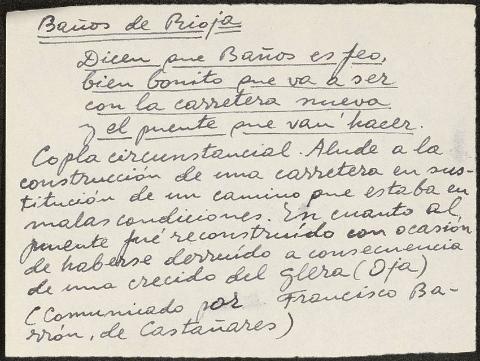 Baños de Rioja
Dicen que Baños es feo,
bien bonito que va a ser
con la carretera nueva
y el puente que van hacer.
Copla circunstancial. Alude a la
construcción de una carretera en sus-
titución de un camino que estaba en
malas condiciones. En cuanto al
puente fué reconstruído con ocasión
de haberse derruido a consecuencia
de una crecido del glera (Oja)
(Comunicado por Francisco Ba-
rrón, de Castañares)